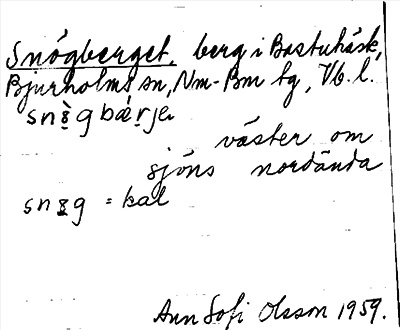 Snögberget, berg i Bastuträsk,
Bjurholms sn, Nm-Bm tg, Vb. l.
väster om
sjöns nordända
= kal
Ann Sofi Olsson 1959.